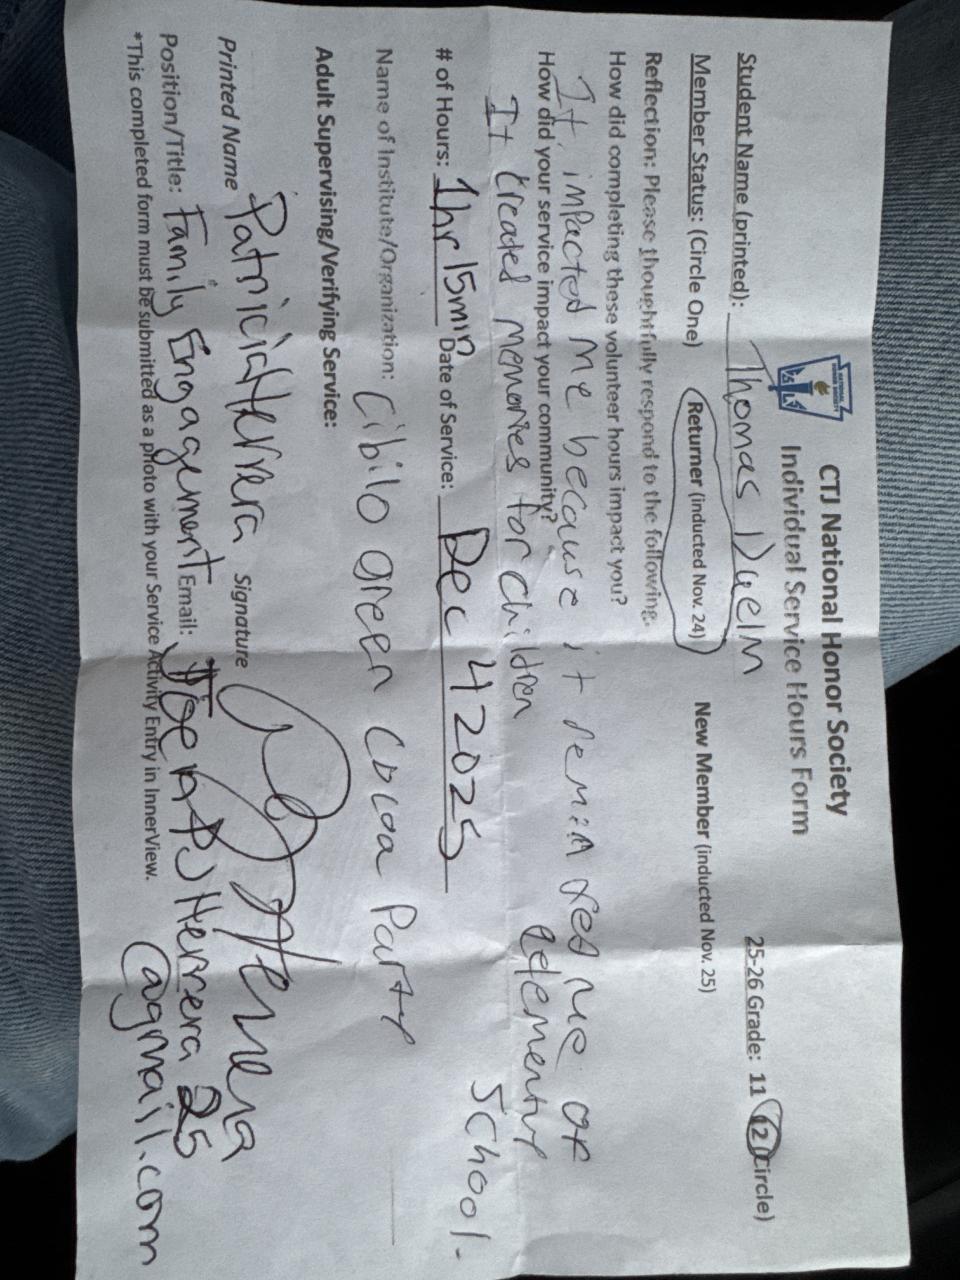 CTJ National Honor Society
Individual Service Hours Form
Student Name (printered): Thomas Duelm 25-26 Grade: 11 12 (Circle)
Member Status: (Circle One) Returner (inducted Nov. 24) New Member (inducted Nov. 25)
Reflection: Please thoughtfully respond to the following.
How did completing these volunteer hours impact you?
It impacted me because it reminded me of elementry school.
How did your service impact your community?
It created memories for children
# of Hours: 1hr 15min Date of Service: Dec 4 2025
Name of Institute/Organization: Cibilo green cocoa Party
Adult Supervising/Verifying Service:
Printed Name Patricia Herrera Signature
Position/Title: Family Engagement Email: Herrera25@gmail.com
*This completed form must be submitted as a photo with your Service Activity Entry in InnerView.